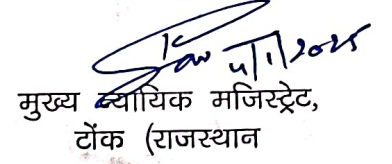 4/1/2025
मुख्य न्यायिक मजिस्ट्रेट,
टोंक (राजस्थान